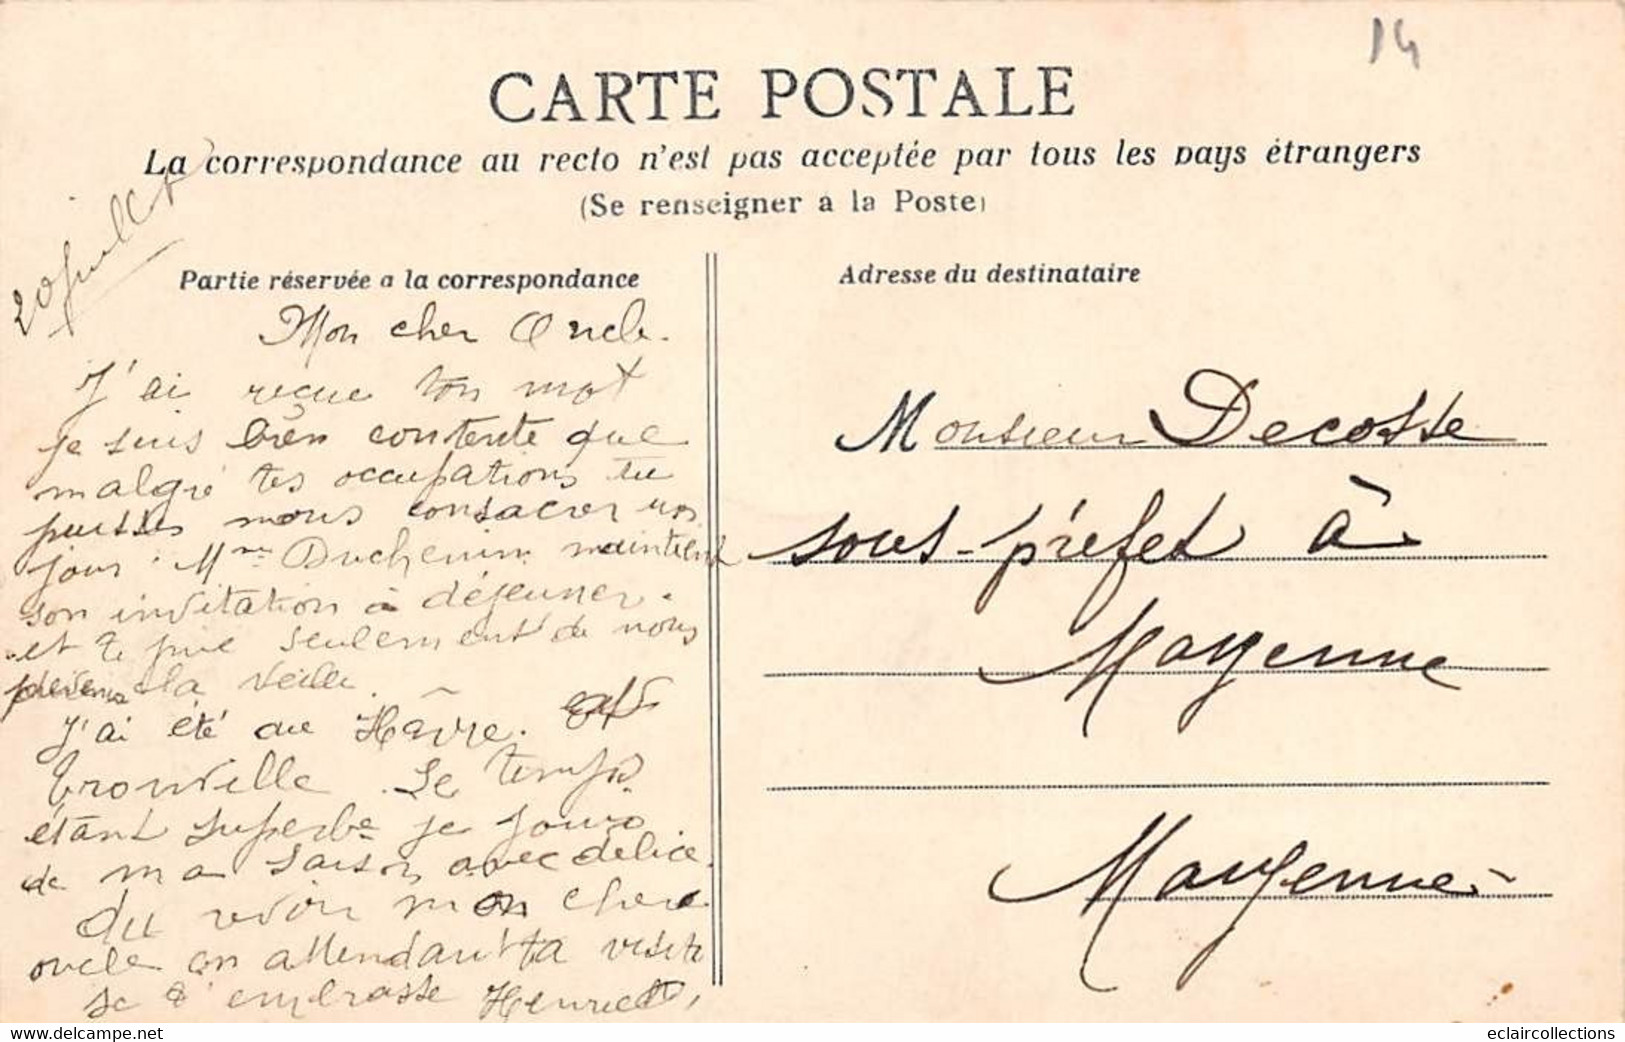 14
CARTE POSTALE
La correspondance au recto n'est pas acceptée par tous les pays étrangers
(Se renseigner a la Poste)
20 juillet
Partie réservée a la correspondance
Mon cher Oncle.
J'ai reçue ton mot
je suis bien contente que
malgré tes occupations tu
puisses nous consacrer un
jour. Mme Duchemin maintient
son invitation à déjeuner.
et te prie seulement de nous
prévenir la veille.
J'ai été au Hâvre.
trouville. Le temps
étant superbe je jouis
de ma saison avec délice.
Au revoir mon cher
oncle en attendant ta visite
je t'embrasse Henriette
Adresse du destinataire
Monsieur Decosse
sous-préfet à
Mayenne
Mayenne
eclaircollections